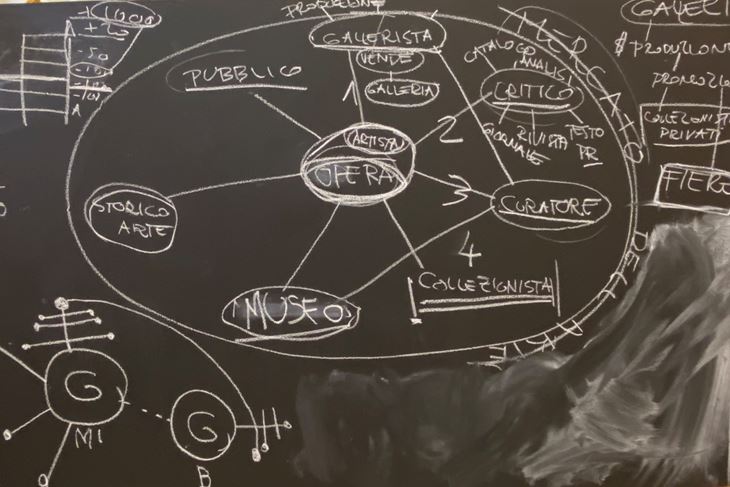 PRODUZIONE
GALLERISTA
VENDE
GALLERIA
+ 20
- 50
PUBBLICO
1
CATALOGO
ANALISI
CRITICO
GIORNALE
RIVISTA
TESTO
PR
2
ARTISTA
OPERA
3
CURATORE
STORICO
ARTE
4
COLLEZIONISTA
MUSEO
MERCATO
DELL'ARTE
$ PRODUZIONE
COLLEZIONISTI
PRIVATI
FIERE
G
MI
G
B